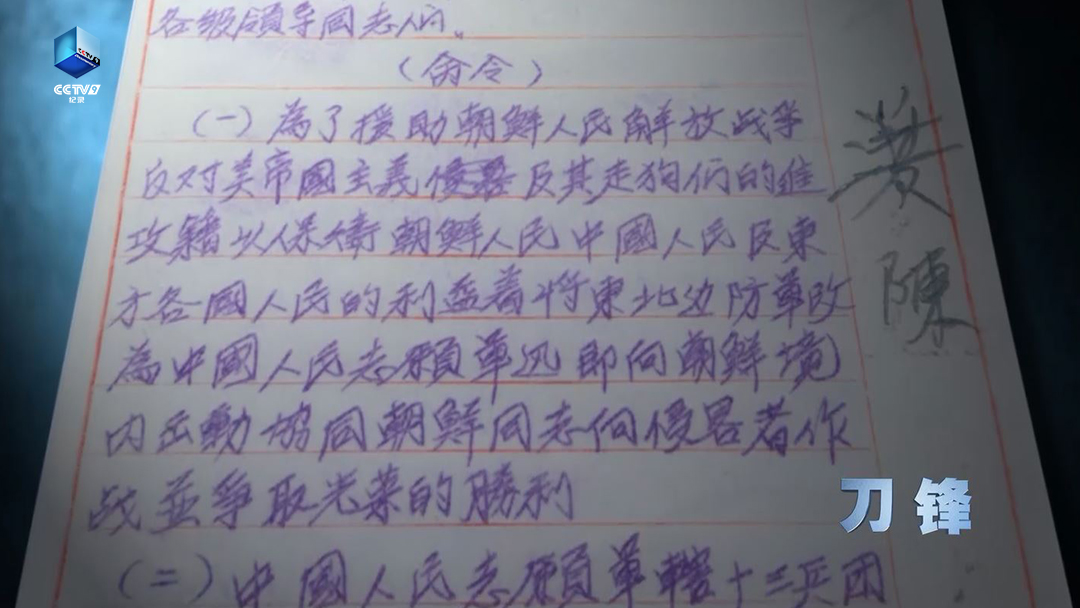 CCTV9
纪录
各级領导同志们。
(命令)
(一)為了援助朝鮮人民解放战争
反对美帝國主義侵畧及其走狗们的進
攻籍以保衛朝鮮人民中國人民及東
方各國人民的利益着将東北边防軍改
為中國人民志願軍迅即向朝鮮境
内出動協同朝鮮同志向侵畧者作
战並争取光荣的勝利
(二)中國人民志願軍轄十三兵团
陳
刀锋